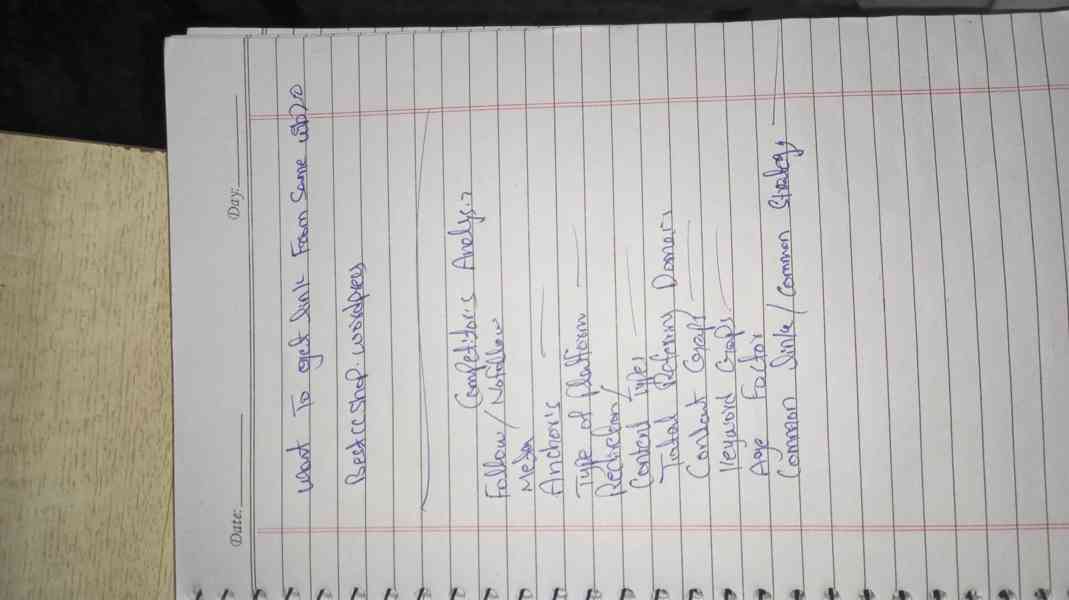 Date: Day:
Want To get link From Same web20
Bestccshop.wordpress
Competitor's Analysis
Follow/Nofollow
Media
Anchor's
Type of Platform
Redirection/
Content Types
Total Refering Domais
Content Gaps
Keyword Gaps
Age Factor
Common link/Common Strategy